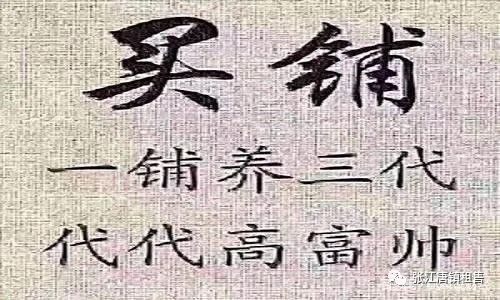 买铺
一铺养三代
代代高富帅
张江唐镇租售